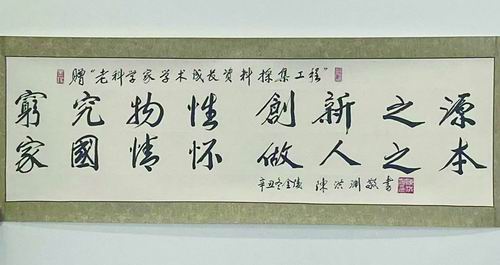 赠"老科学家学术成长資料採集工程"
窮究物性 創新之源
家國情怀 做人之本
辛丑冬金陵 陳洪渊敬書